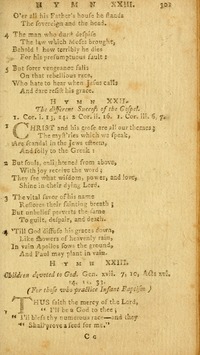 HYMN XXIII. 303
O'er all his Father's house he stands
The sovereign and the head.
4 The man who durst despise
The law which Moses brought,
Behold! how terribly he dies
For his presumptuous fault!
5 But sorer vengeance falls
On that rebellious race,
Who hate to hear when Jesus calls
And dare resist his grace.
HYMN XXII.
The different Success of the Gospel.
1 Cor. i. 23, 24. 2 Cor. ii. 16. 1 Cor. iii. 6, 7.
CHRIST and his cross are all our theme;
The myst'ries which we speak,
Are scandal in the Jews esteem,
And folly to the Greek:
2 But souls, enlighten'd from above,
With joy receive the word;
They see what wisdom, power, and love,
Shine in their dying Lord.
3 The vital savor of his name
Restores their fainting breath;
But unbelief perverts the same
To guilt, despair, and death.
4 Till God diffuse his graces down,
Like showers of heavenly rain,
In vain Apollos sows the ground,
And Paul may plant in vain.
HYMN XXIII.
Children devoted to God. Gen. xvii. 7, 10, Acts xvi.
14, 15, 33.
(For those who practise Infant Baptism)
THUS saith the mercy of the Lord,
" I'll be a God to thee;
" I'll bless thy numerous race—and they
" Shall prove a seed for me."
C c